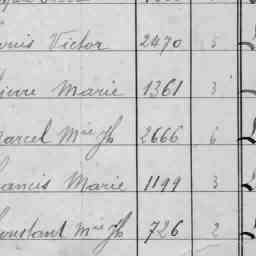 ouis Victor 2470 5
ierre Marie 1361 3
arcel Mie Jh 2666 6
rancis Marie 1199 3
onstant Mie Jh 726 2